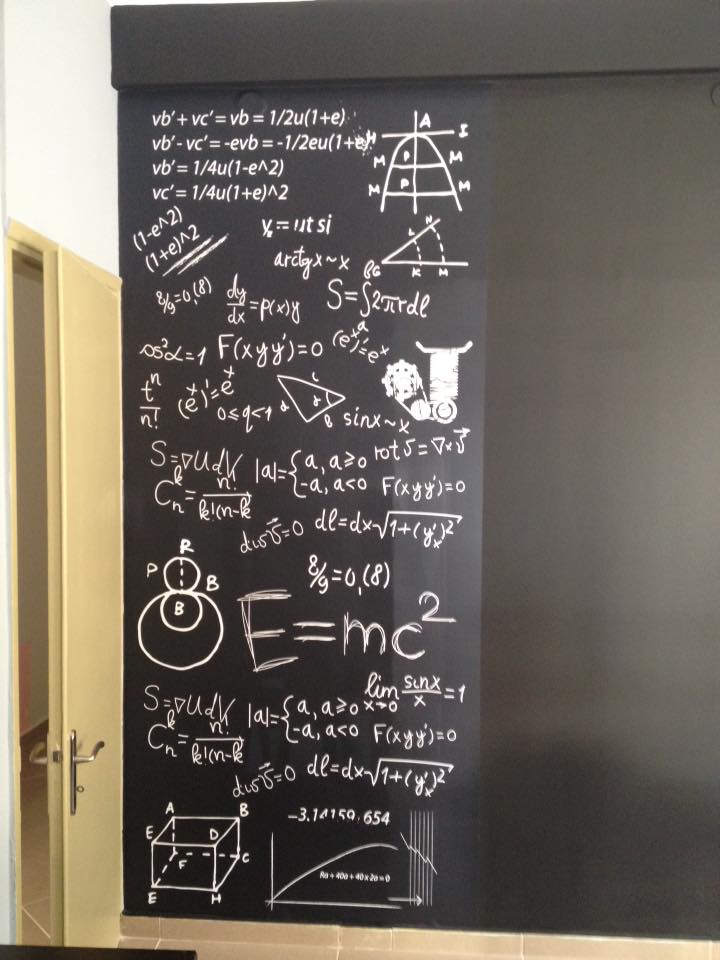 vb' + vc' = vb = 1/2u(1+e)
vb' - vc' = -evb = -1/2eu(1+e)
vb' = 1/4u(1-e^2)
vc' = 1/4u(1+e)^2
A
H I
M P M
M P M
(1-e^2)
(1+e)^2
arctgx~x
N
L
BG K M
8/9=0,(8)
dy/dx = p(x)y
S=∫2πrdl
cos²α=1
F(xyy')=0
(e^x)'=e^x
t^n/n!
(e^x)'=e^x
0≤q<1
sinx~x
S=▽UdV
|a|={a, a≥0
-a, a<0
rot v⃗ = ▽×v⃗
C_n^k = n!/k!(n-k
F(xyy')=0
div v⃗=0
dl=dx√1+(y'x)²
R
P B
B
8/9=0,(8)
E=mc²
lim x→0 sinx/x=1
S=▽UdV
|a|={a, a≥0
-a, a<0
C_n^k = n!/k!(n-k
F(xyy')=0
div v⃗=0
dl=dx√1+(y'x)²
A B
E D
F C
E H
-3.14159.654
Ra + 40a + 40 x 2a = 0